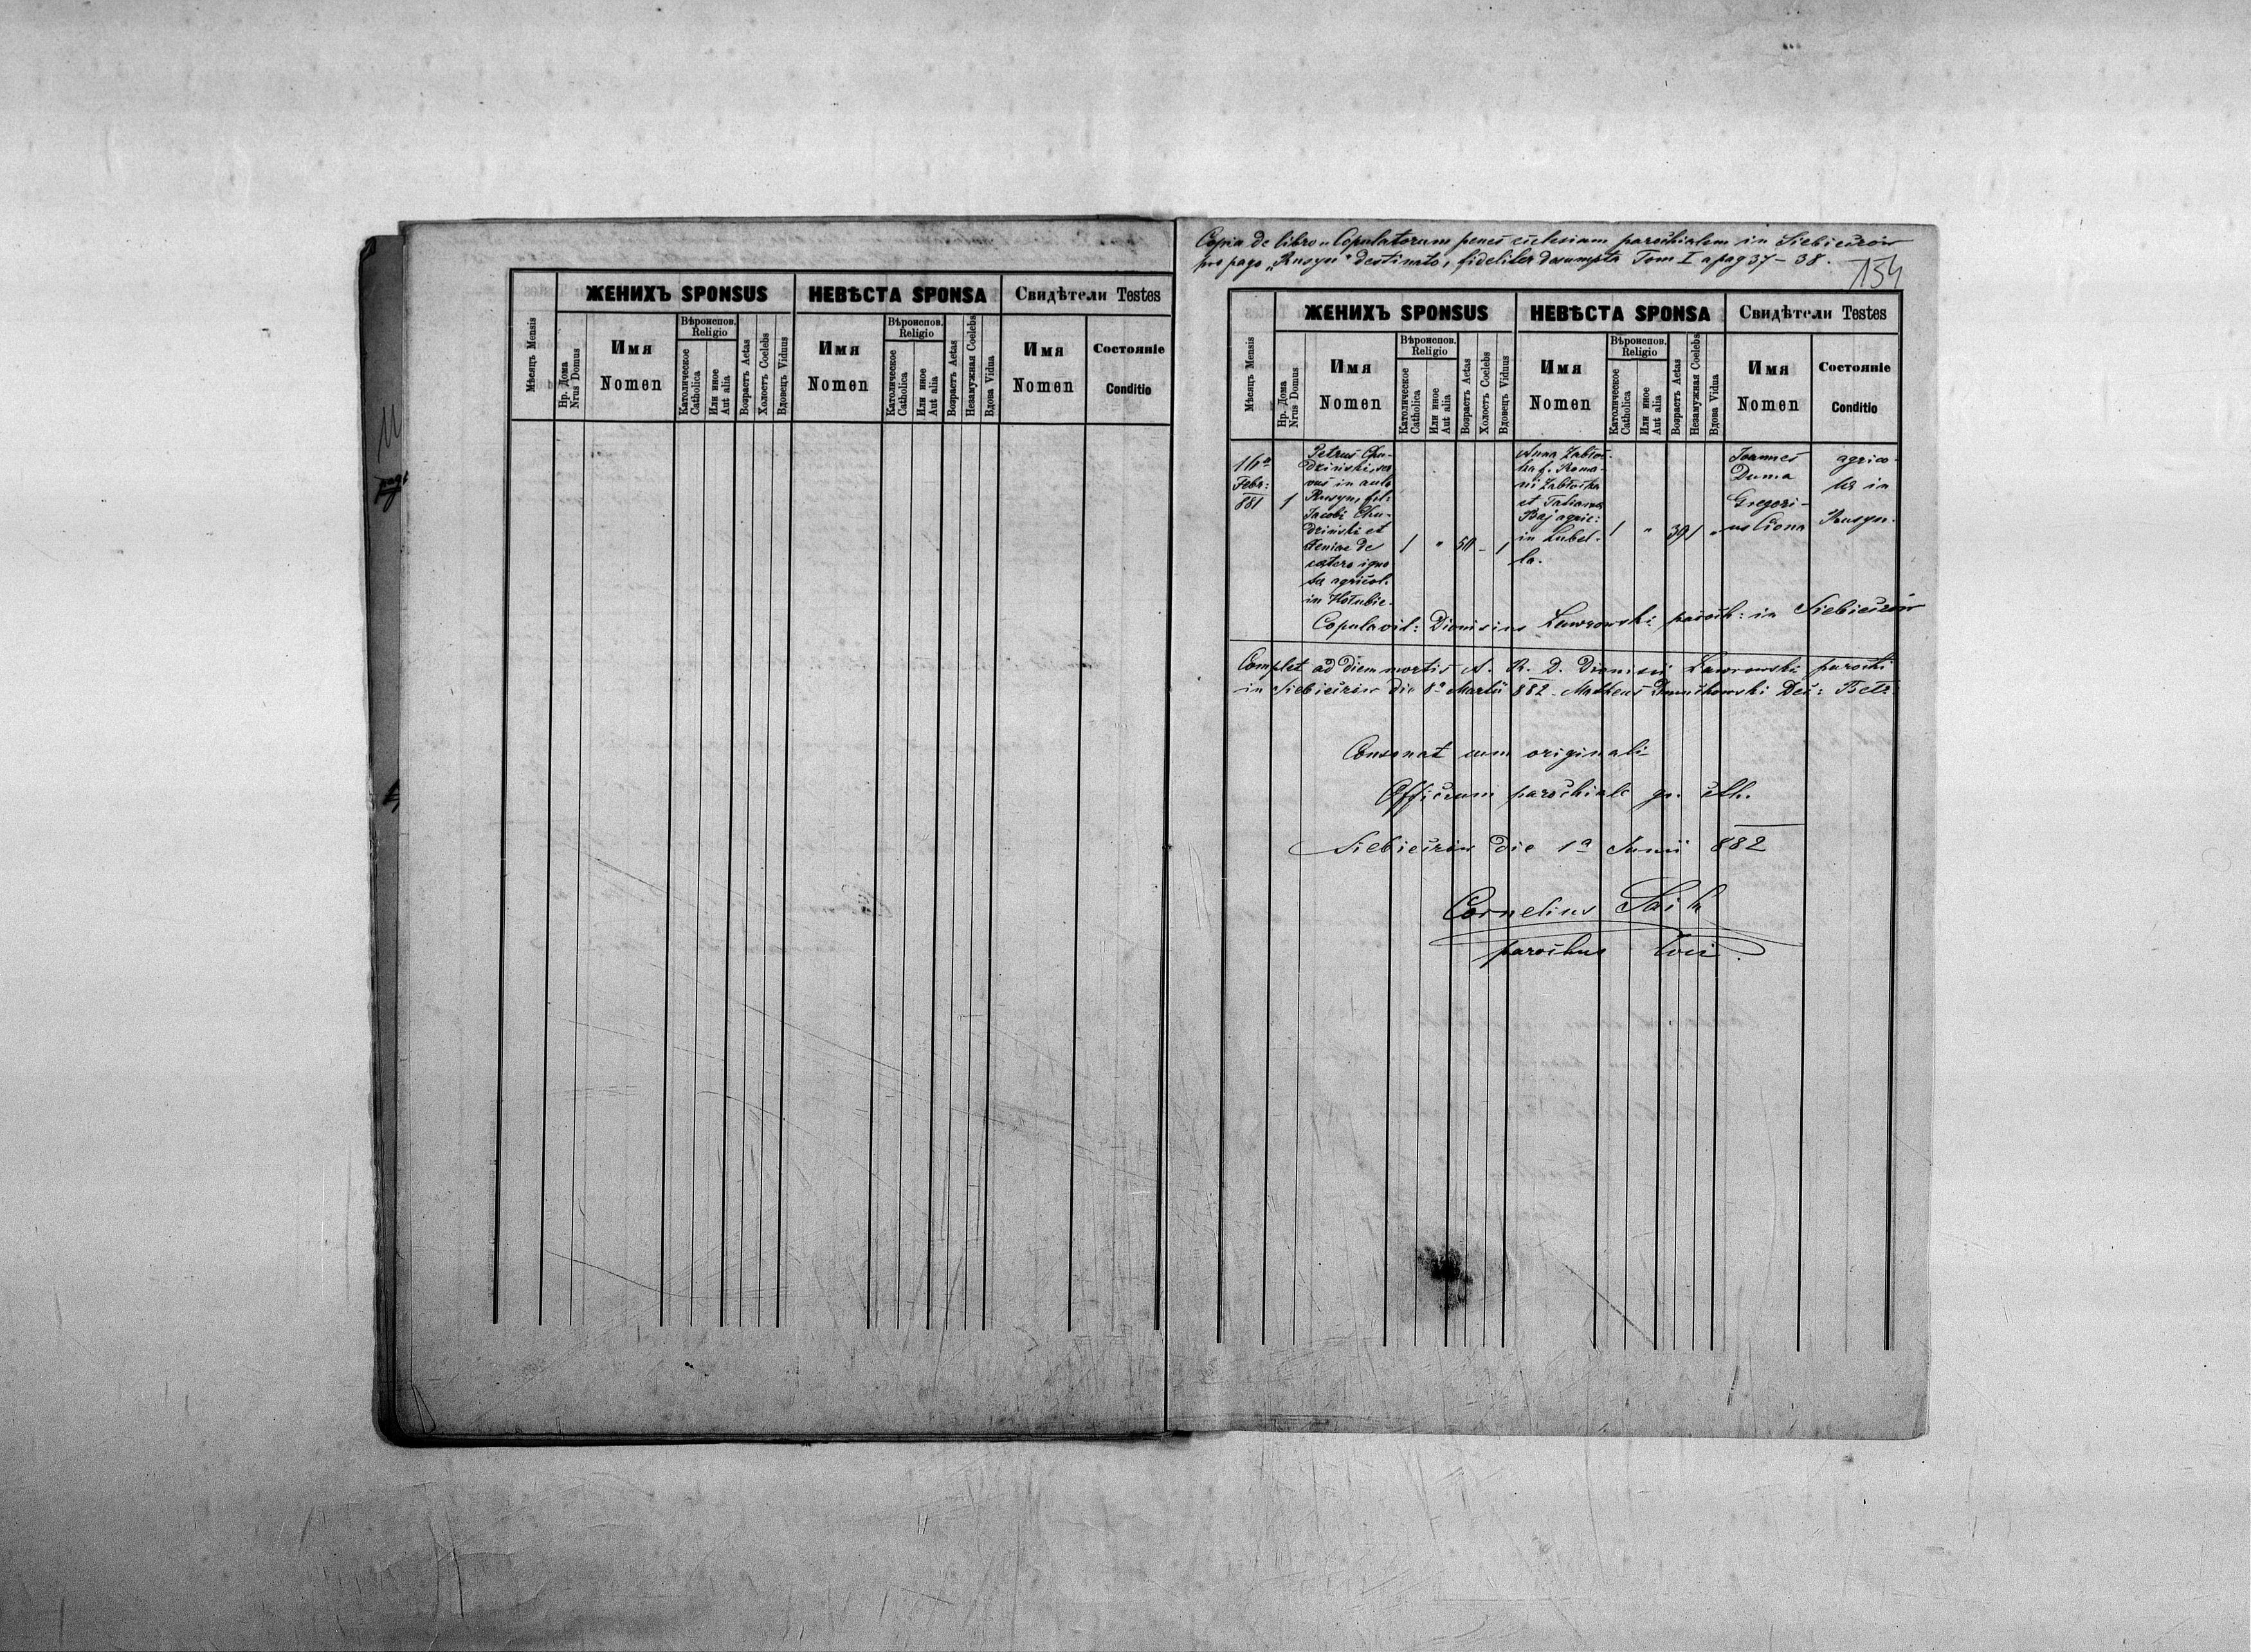 ЖЕНИХЪ SPONSUS
НЕВѢСТА SPONSA
Свидѣтели Testes
Мѣсяцъ Mensis
Нр. Дома
Nrus Domus
Имя
Nomen
Вѣроиспов.
Religio
Католическое
Catholica
Или иное
Aut alia
Возрастъ Aetas
Холостъ Coelebs
Вдовецъ Viduus
Имя
Nomen
Вѣроиспов.
Religio
Католическое
Catholica
Или иное
Aut alia
Возрастъ Aetas
Незамужная Coelebs
Вдова Vidua
Имя
Nomen
Состояніе
Conditio
Copia de libro „Copulatorum penes ecclesiam parochialem in Siebieczów
pro pago „Rusyn“ destinato, fideliter desumpta Tom I a pag 37 – 38.
154
ЖЕНИХЪ SPONSUS
НЕВѢСТА SPONSA
Свидѣтели Testes
Мѣсяцъ Mensis
Нр. Дома
Nrus Domus
Имя
Nomen
Вѣроиспов.
Religio
Католическое
Catholica
Или иное
Aut alia
Возрастъ Aetas
Холостъ Coelebs
Вдовецъ Viduus
Имя
Nomen
Вѣроиспов.
Religio
Католическое
Catholica
Или иное
Aut alia
Возрастъ Aetas
Незамужная Coelebs
Вдова Vidua
Имя
Nomen
Состояніе
Conditio
16ª
Febr:
881
1
Petrus Chu-
dzinski, ser
vus in aula
Rusyn, fil:
Jacobi Chu-
dzinski et
Xeniae de
cetero igno
ta agricol.
in Hołubie.
1 " 50 – 1
Anna Zabłoc-
ka f. Roma-
ni Zabłocka
et Tatianna
Baj agric:
in Lubel-
la.
1 " 39 1 "
Joannes
Duma
Gregori-
us Ciona
agrico-
lae in
Rusyn.
Copulavit: Dionisius Ławrowski paroch: in Siebieczów
Complet ad diem mortis A. R. D. Dionisii Ławrowski parochi
in Siebieczów die 8ª Martii 882 – Matheus Dec: Belz
Consonat cum originali
Officium parochiale gr. cth.
Siebieczów die 1ª Junii 882
Cornelius
parochus loci.